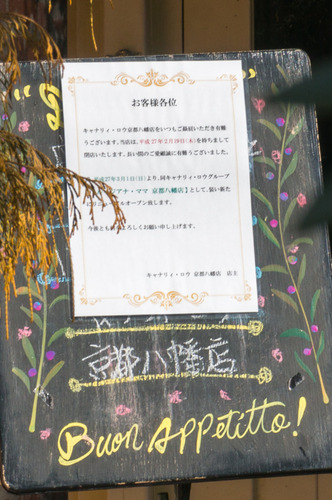 お客様各位
キャナリィ・ロウ京都八幡店をいつもご最続いただき有難
うございます。当店は、平成27年2月19日(木)を持ちまして
閉店いたします。長い間のご愛顧誠に有難うございました。
平成27年3月1日(日)より、同キャナリィ・ロウグループ
アナ・ママ 京都八幡店】として、装い新た
にリニューアルオープン致します。
今後とも よろしくお願い申し上げます。
キャナリィ・ロウ 京都八幡店 店主
京都八幡店
Buon Appetitto!